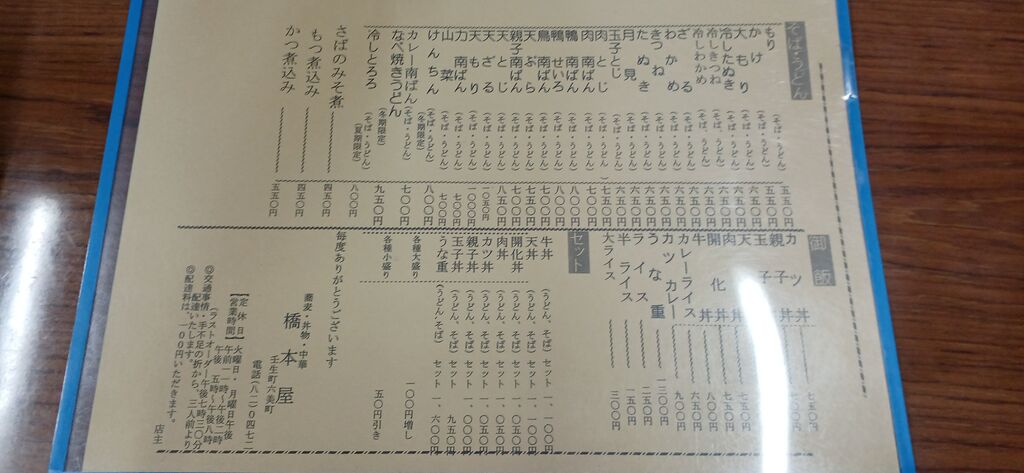 そば・うどん
もり (そば・うどん) 五五〇円
かけ (そば・うどん) 五五〇円
大もり (そば・うどん)
冷したぬき (そば・うどん) 六五〇円
冷しきつね (そば、うどん) 六五〇円
冷しわかめ (そば、うどん) 六五〇円
ざる (そば・うどん)
わかめ (そば・うどん) 六五〇円
きつね (そば・うどん) 六五〇円
たぬき (そば・うどん) 六五〇円
月見 (そば・うどん)
玉子とじ (そば・うどん)
肉とじ (そば・うどん)
肉南ばん (そば・うどん)
鴨南ばん (そば・うどん) 八〇〇円
鴨せいろ (そば・うどん)
鳥南ばん (そば・うどん) 七〇〇円
天ぷら (そば・うどん) 八〇〇円
親子南ばん (そば・うどん) 七〇〇円
天とじ (そば・うどん) 八五〇円
天ざる (そば・うどん) 一〇五〇円
天もり (そば・うどん) 一〇〇〇円
力南ばん (そば・うどん) 七〇〇円
山菜 (そば・うどん) 七〇〇円
けんちん (そば・うどん) (冬期限定) 八〇〇円
カレー南ばん (そば・うどん) 七〇〇円
なべ焼きうどん (冬期限定) 九五〇円
冷しとろろ (そば・うどん) (夏期限定) 八〇〇円
さばのみそ煮 四五〇円
もつ煮込み 四五〇円
かつ煮込み 五五〇円
御飯
カツ丼 七五〇円
親子丼
玉子丼
天丼 七五〇円
肉丼
開化丼
牛丼
カレーライス
カツカレー 九〇〇円
うな重
ライス
半ライス 一五〇円
大ライス 三〇〇円
セット
牛丼 (うどん、そば) セット 一、一〇〇円
天丼 (うどん、そば) セット
開化丼 (うどん、そば) セット
肉丼 (うどん、そば) セット
カツ丼 (うどん、そば) セット
親子丼 (うどん、そば) セット
玉子丼 (うどん、そば) セット 九五〇円
うな重 (うどん、そば) セット 一、六〇〇円
各種大盛り 一〇〇円増し
各種小盛り 五〇円引き
毎度ありがとうございます
蕎麦・丼物・中華
橋本屋
壬生町六美町
電話(八二)〇四七二
【定休日】火曜日・月曜日午後
【営業時間】午前一一時〜午後二時
午後 五時〜午後八時
(ラストオーダー午後七時三〇分)
◎交通事情・手不足の折から、三人前より
配達いたします。
◎配達料は、一〇〇円いただきます。
店主